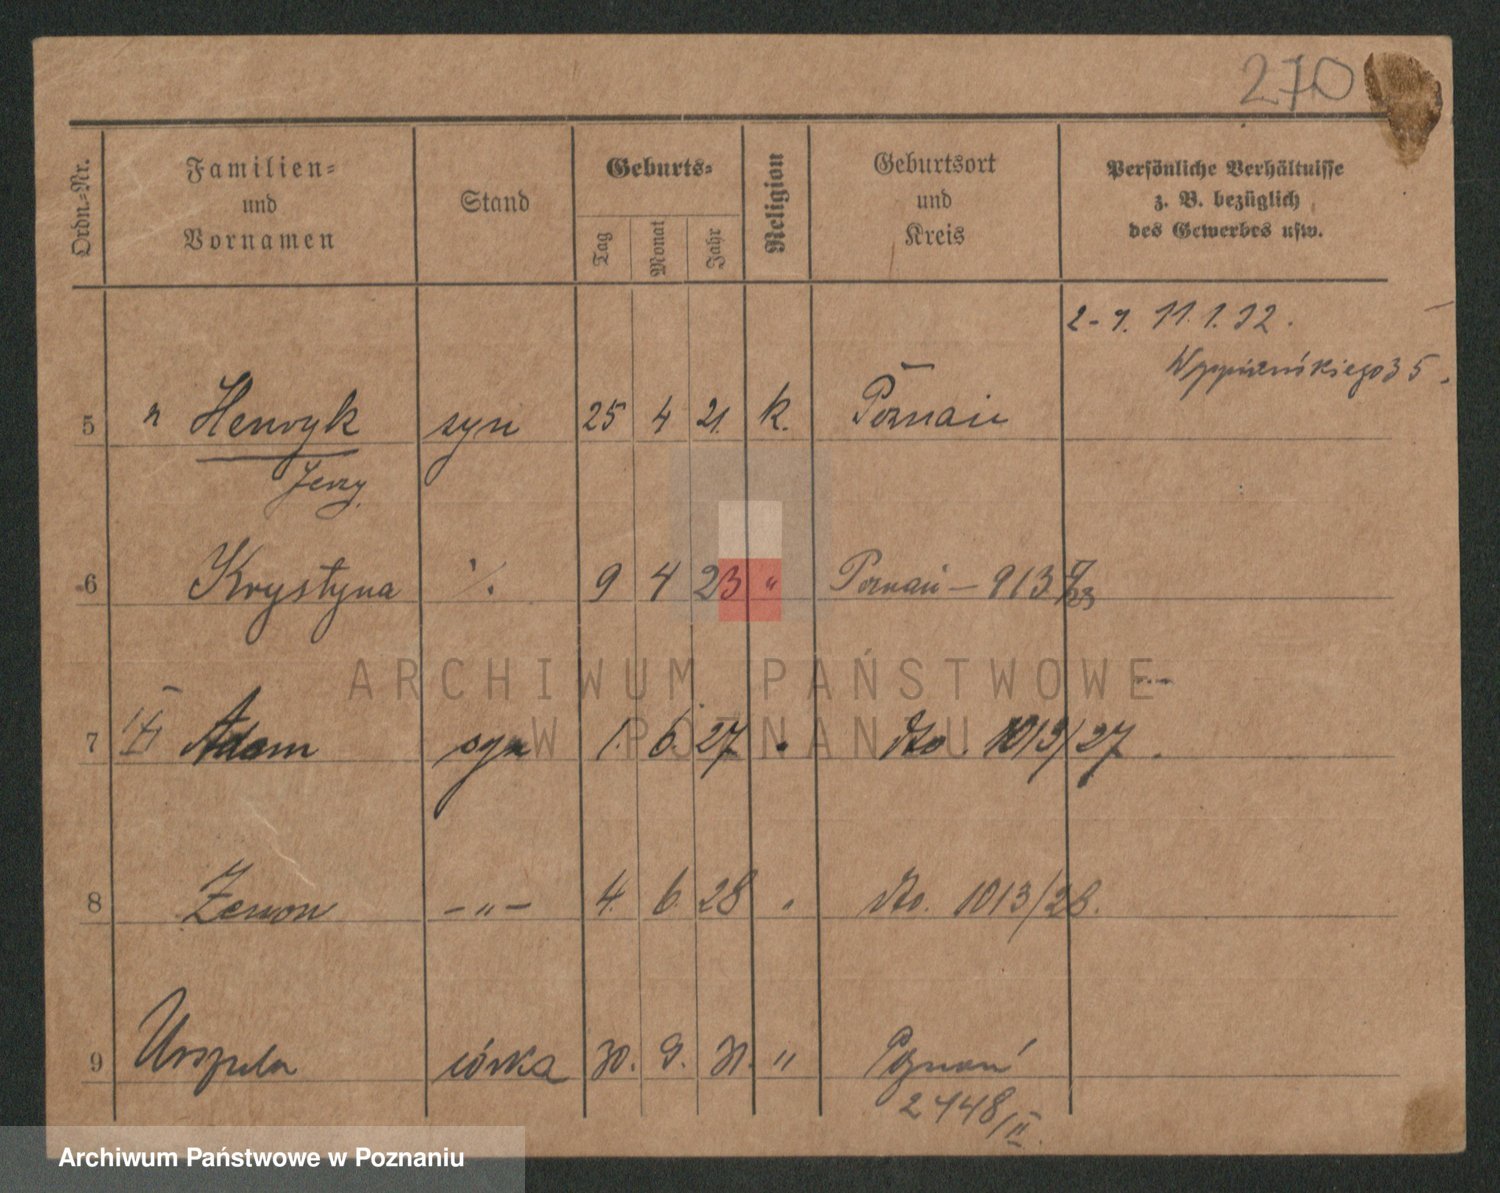 270
Ordn.-Nr.
Familien-
und
Vornamen
Stand
Geburts-
Tag
Monat
Jahr
Religion
Geburtsort
und
Kreis
Persönliche Verhältnisse
z. B. bezüglich
des Gewerbes usw.
11. 1. 32.
35.
5 Henryk syn 25 4 21. k. Poznań
Jerzy
6 Krystyna 9 4 23 " Poznań – 913
7 Adam syn 1. 6. 27 " dto. 1013/27.
8 Zenon – " – 4. 6. 28 " dto. 1013/28.
9 Urszula córka 30. 9. 31. " Poznań
2448/II.
ARCHIWUM PAŃSTWOWE
W POZNANIU
Archiwum Państwowe w Poznaniu